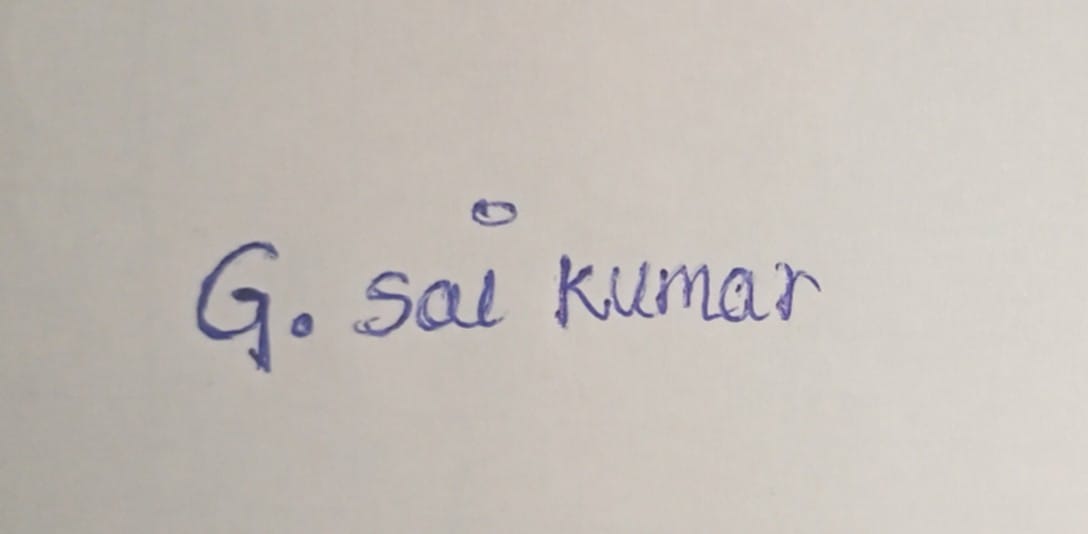 G. sai kumar